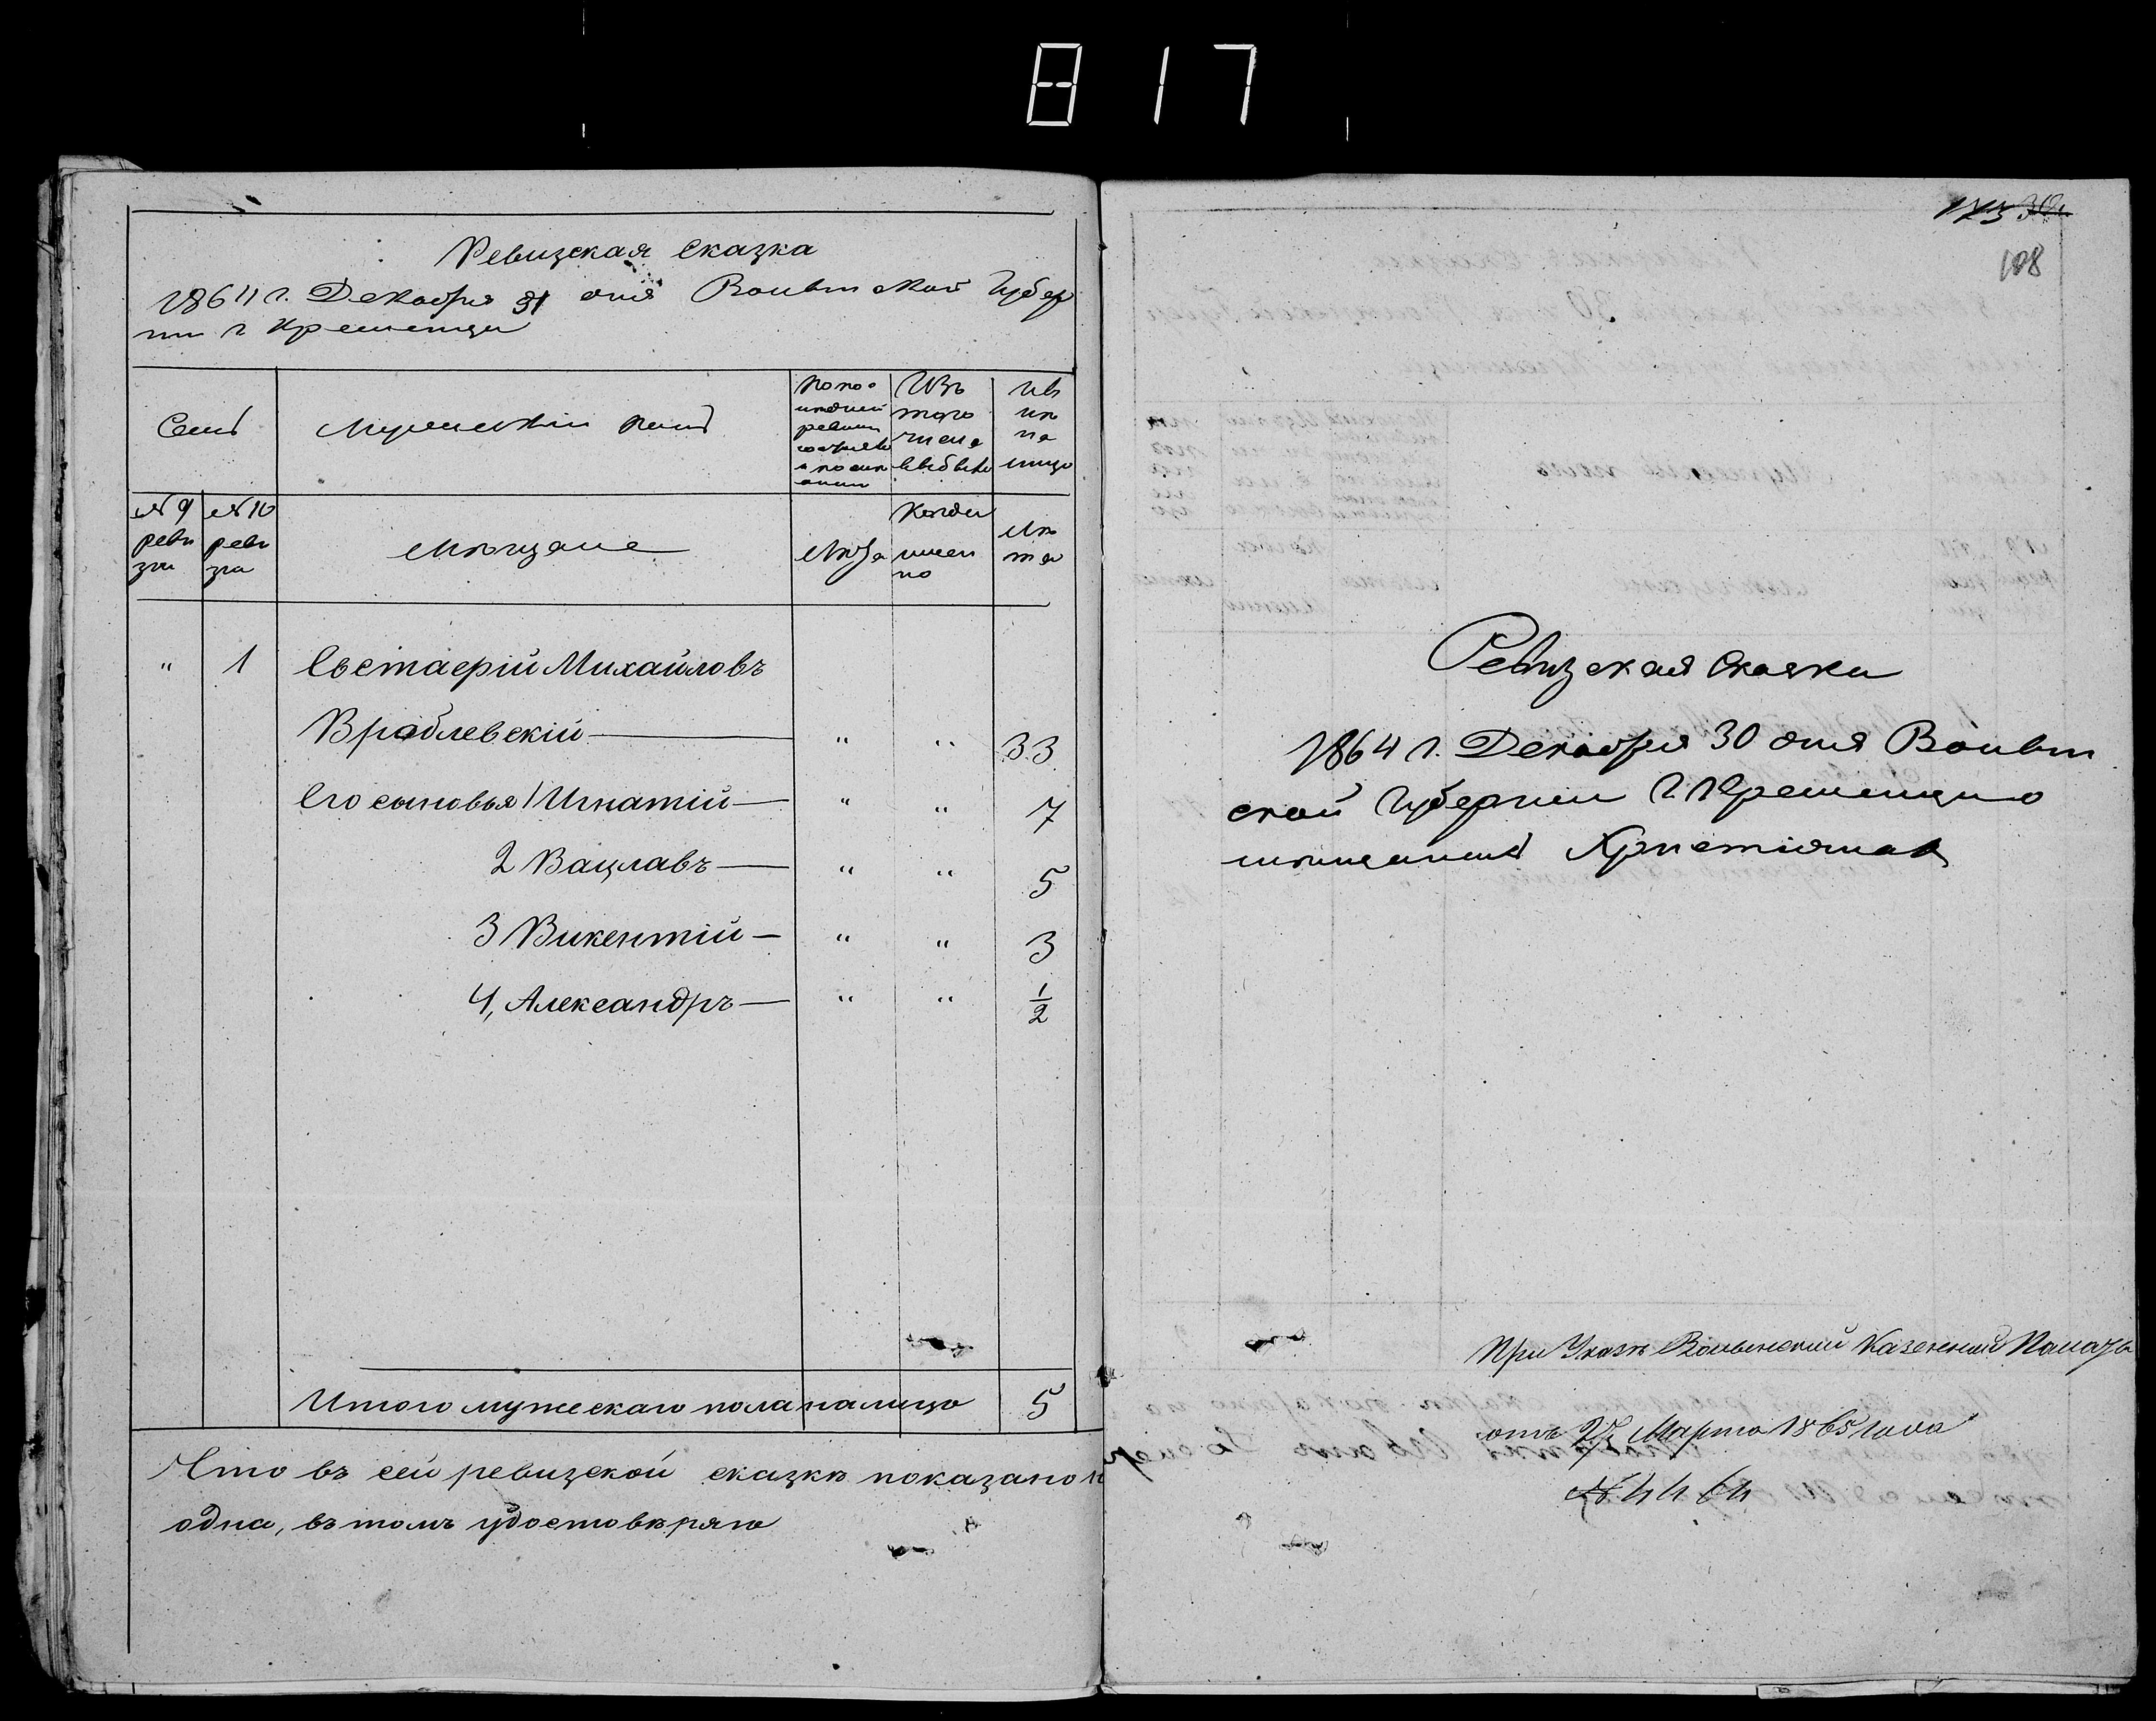 817
Ревизская Сказка
1864 г. Декабря 31 дня Волынской Губер
нии г Кременца
Семьи
Мужескій полъ
По по-
слѣдней
ревизіи
состояло
Изъ
того
числа
выбыло
На
ли
цо
№ 9
реви
зіи
№ 10
реви
зіи
Мѣщане
Лѣта
Когда
имен
но
Лѣ
та
" 1 Евстафій Михайловъ
Враблевскій — " " 33
Его сыновья 1 Игнатій — " " 7
2 Вацлавъ — " " 5
3 Викентій — " " 3
4, Александръ — " " 1/2
Итого мужескаго пола налицо 5
Что въ сей ревизской сказкѣ показано
одна, въ томъ удостовѣряю
108
Ревизская Сказка
1864 г. Декабря 30 дня Волын
ской Губерніи г. Кременца
мѣщанина Христіянъ
При Указѣ Волынской Казенной Палаты
отъ Марта 1865 года
№ 4464